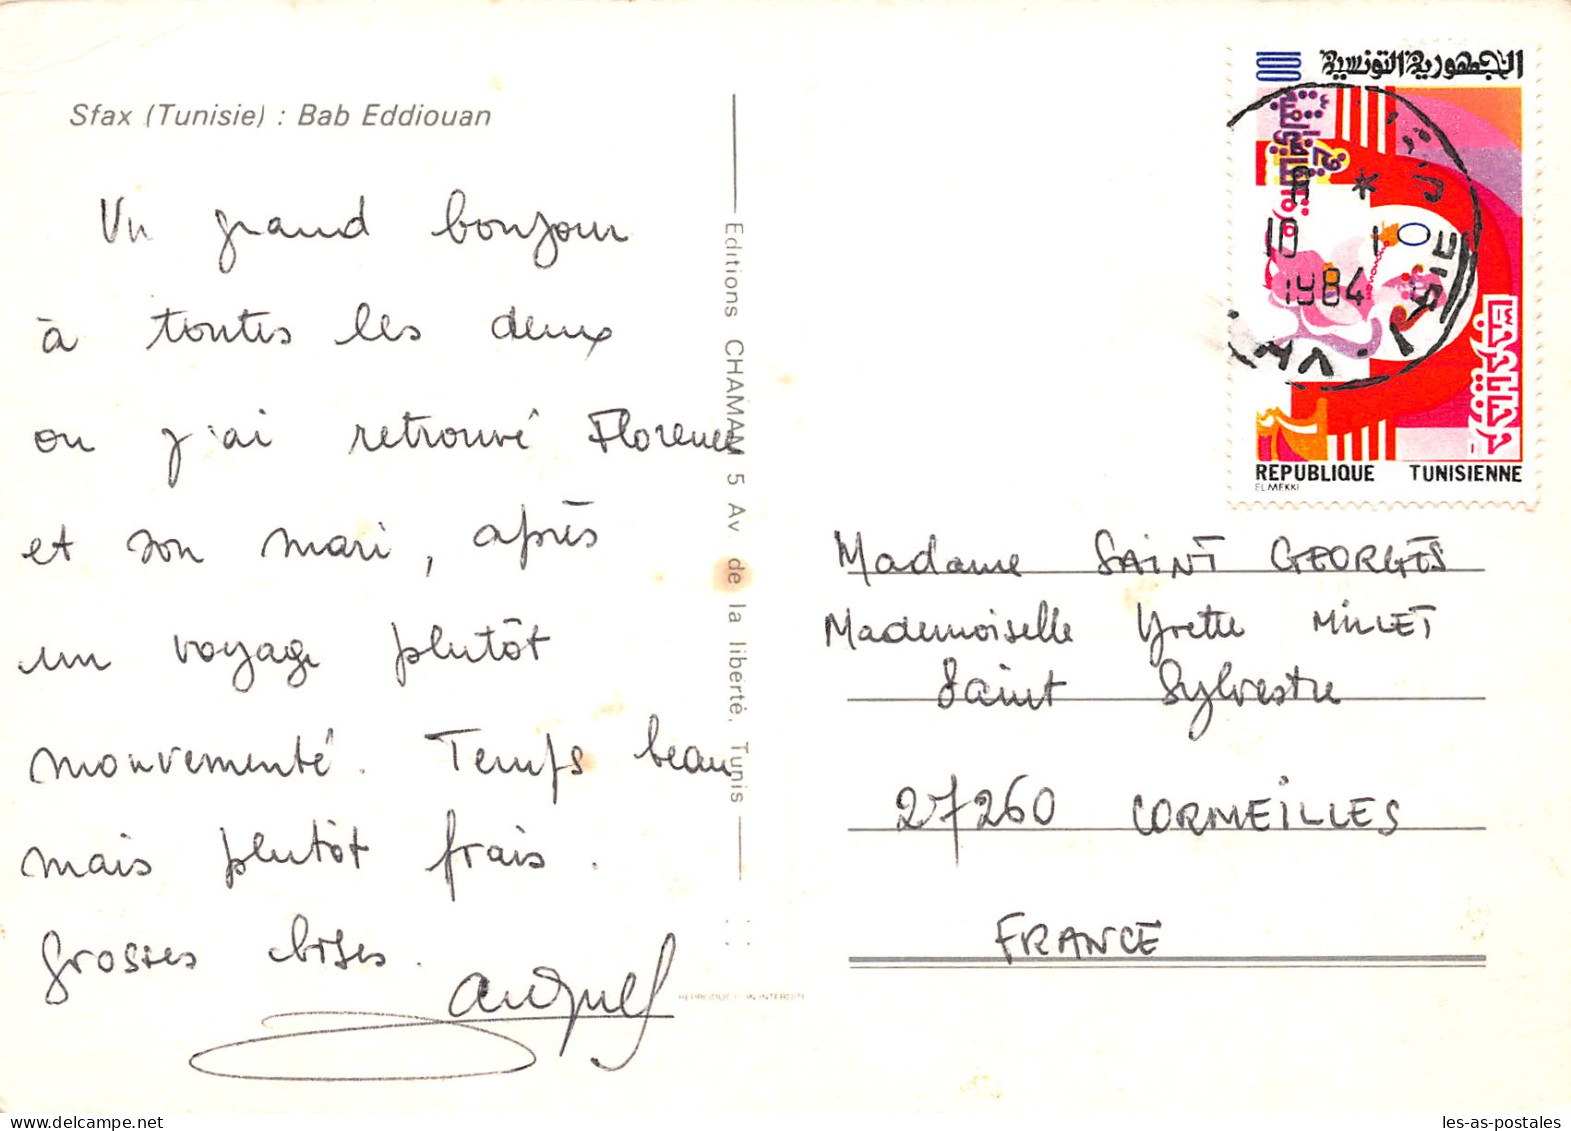 Sfax (Tunisie) : Bab Eddiouan
Un grand bonjour
à toutes les deux
ou j'ai retrouvé Florence
et son mari, après
un voyage plutôt
mouvementé. Temps beau
mais plutôt frais.
grosses bises.
Editions CHAMAM 5 Av de la liberté. Tunis
REPRODUCTION INTERDITE
100 الجمهورية التونسية
1984
REPUBLIQUE TUNISIENNE
EL MEKKI
Madame SAINT GEORGES
Mademoiselle Yvette MILLET
Saint Sylvestre
27260 CORMEILLES
FRANCE
les-as-postales